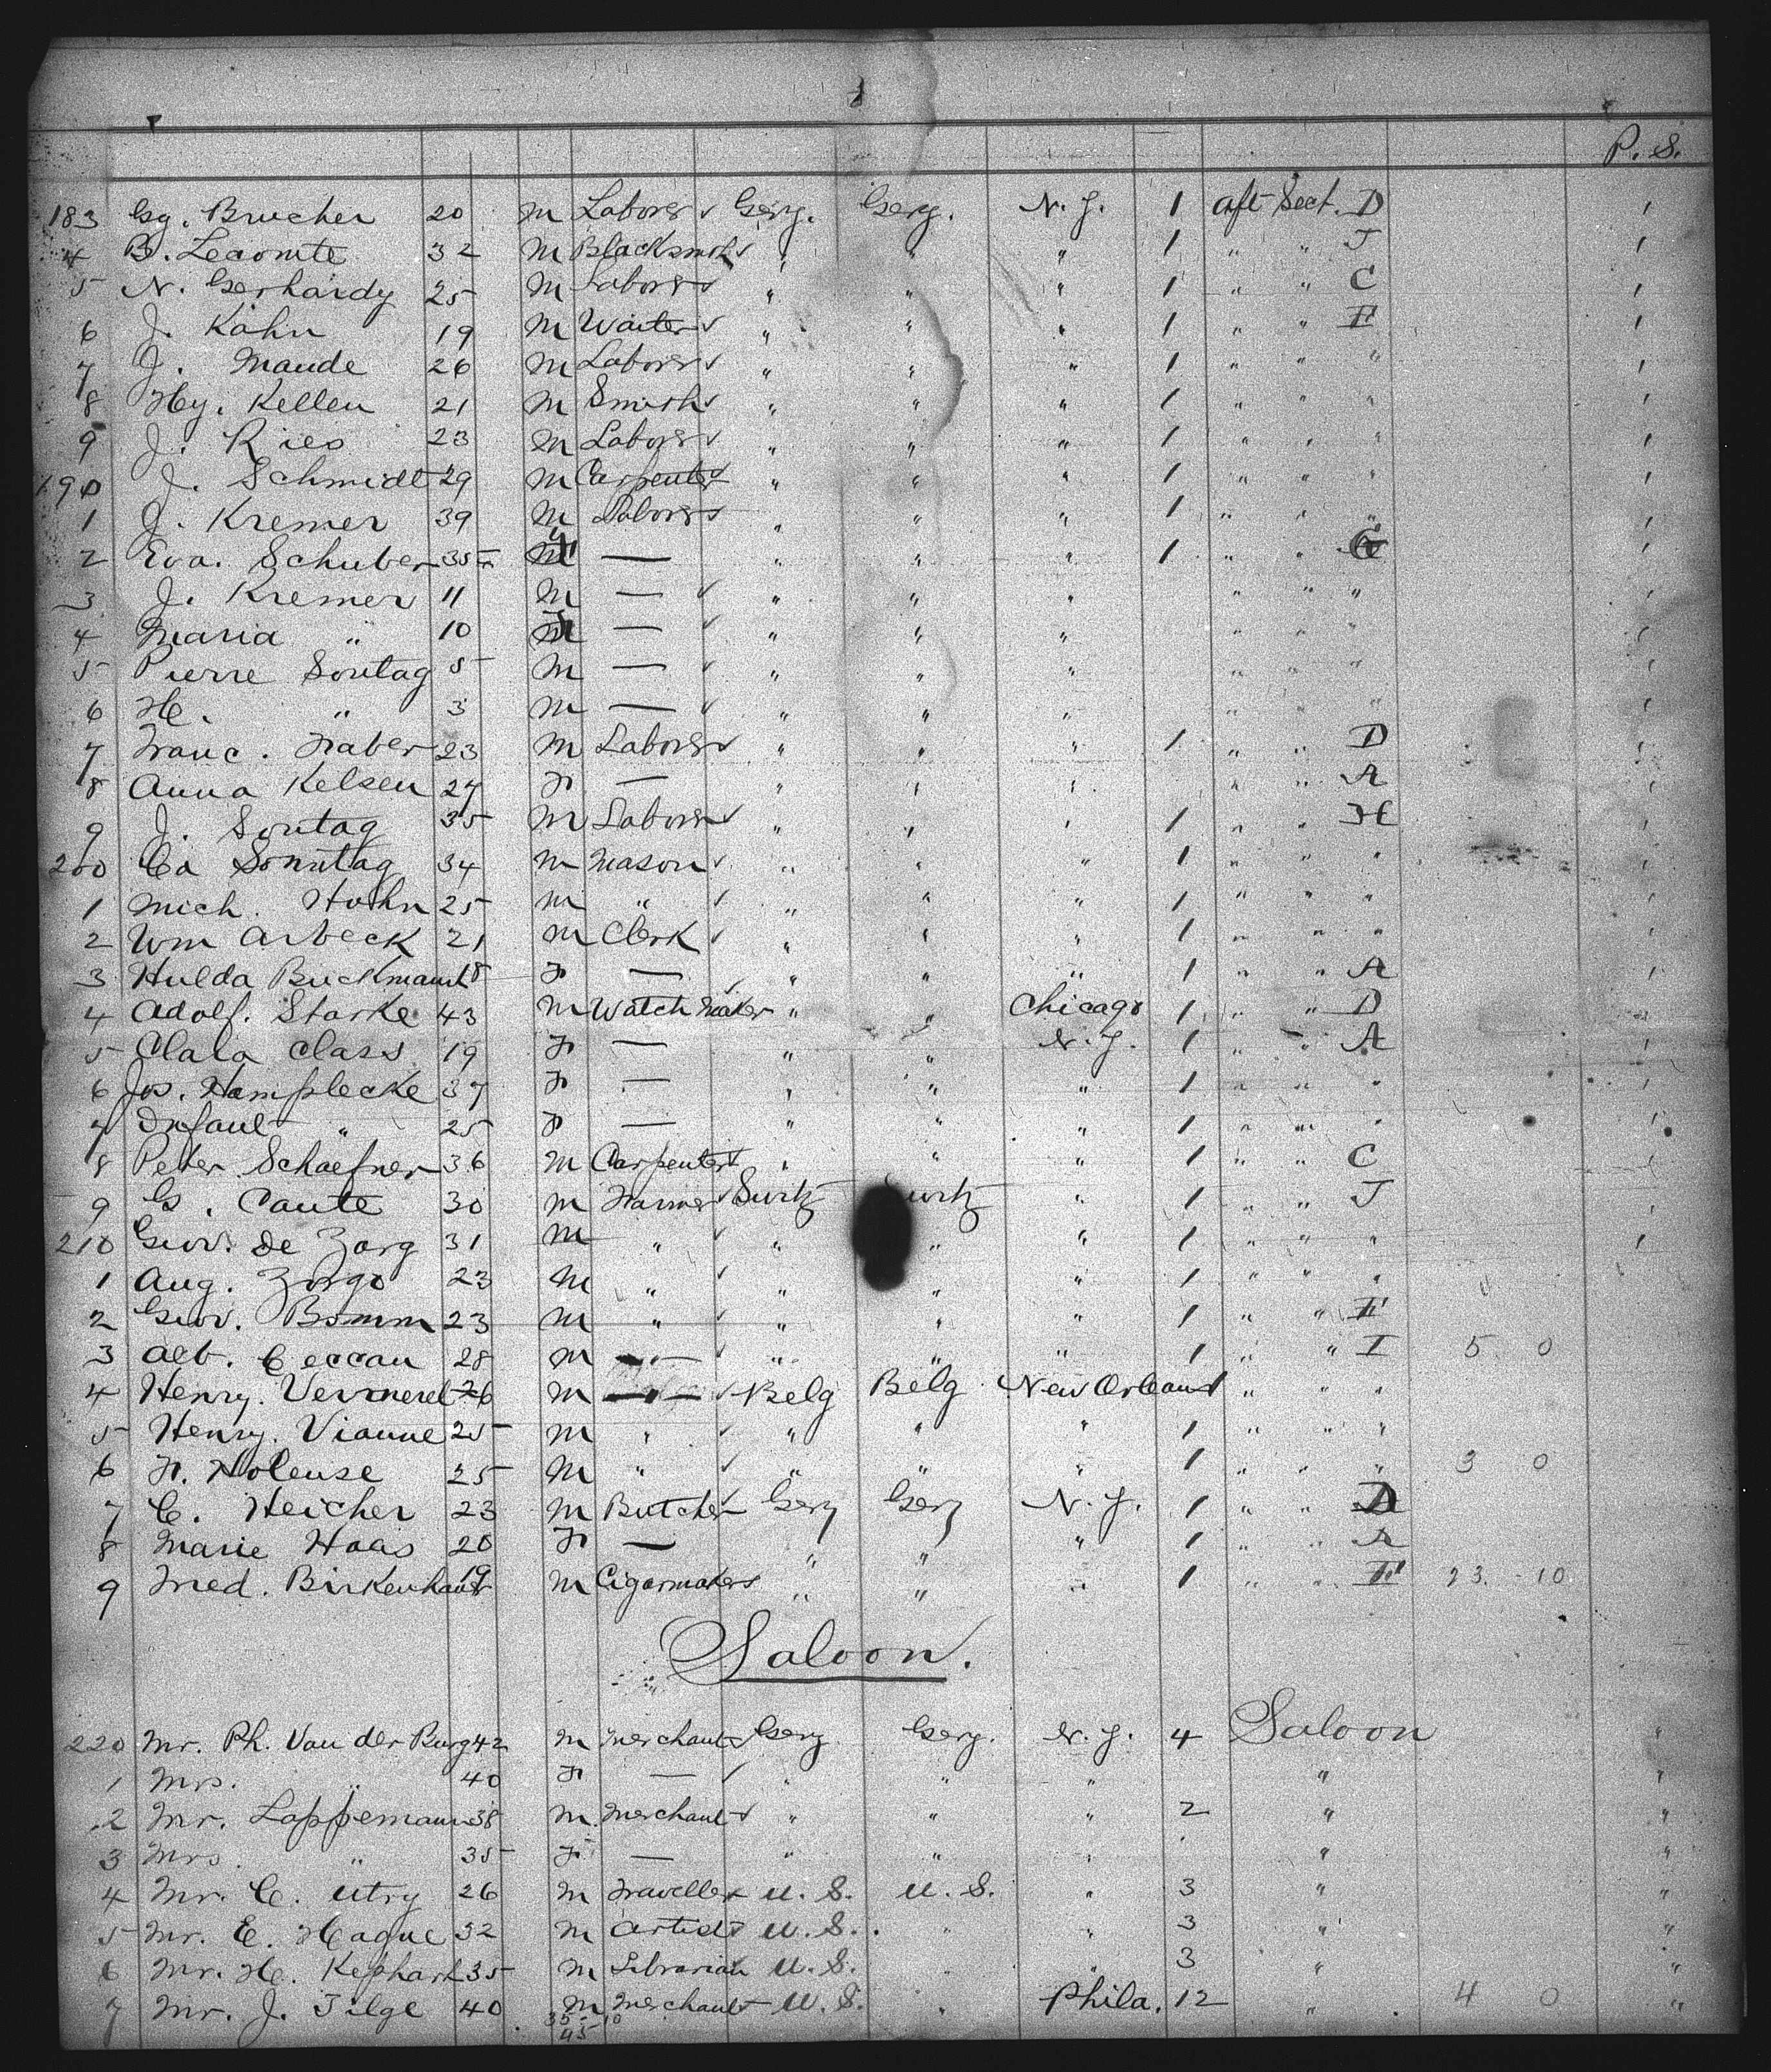 P. S.
183 Gg. Brucher 20 M Laborer ✓ Gery. Gery. N.Y. 1 aft Sect. D 1
4 B. Lecomte 32 M Blacksmith ✓ " " " 1 " " J 1
5 N. Gerhardy 25 M Laborer ✓ " " " 1 " " C 1
6 J. Kahn 19 M Waiter ✓ " " " 1 " " E 1
7 J. Maude 26 M Laborer ✓ " " " 1 " " " 1
8 Hy. Kellen 21 M Smith ✓ " " " 1 " " " 1
9 J. Ries 23 M Laborer ✓ " " " 1 " " " 1
190 J. Schmidt 29 M Carpenter ✓ " " " 1 " " " 1
1 J. Kremer 39 M Laborer ✓ " " " 1 " " " 1
2 Eva. Schuber 35 — " " " 1 " " G 1
3 J. Kremer 11 M — ✓ " " " " " " 1
4 Maria " 10 F — ✓ " " " " " " 1
5 Pierre Sontag 5 M — ✓ " " " " " " 1
6 H. " 3 M — ✓ " " " " " " 1
7 Franc. Faber 23 M Laborer ✓ " " " 1 " " D 1
8 Anna Kelsen 27 F — " " " " " A 1
9 J. Sontag 35 M Laborer ✓ " " " 1 " " H 1
200 Ca Sonntag 34 M Mason ✓ " " " 1 " " " 1
1 Mich. Hohn 25 M " ✓ " " " 1 " " " 1
2 Wm Arbeck 21 M Clerk ✓ " " " 1 " " " 1
3 Hulda Buckmann 18 F — ✓ " " " 1 " " A 1
4 Adolf. Starke 43 M Watchmaker " " Chicago 1 " " D 1
5 Clara Class 19 F — " " N.Y. 1 " " A 1
6 Jos. Hamplecke 37 F — " " " 1 " " " 1
7 Infant " 25 F — " " " 1 " " " 1
8 Peter Schaefner 36 M Carpenter ✓ " " " 1 " " C 1
9 G. Caute 30 M Farmer ✓ Switz Switz " 1 " " J 1
210 Giov. De Zorg 31 M " ✓ " " " 1 " " " 1
1 Aug. Zorgo 23 M " ✓ " " " 1 " " "
2 Giov. Bomm 23 M " ✓ " " " 1 " " E
3 Alb. Ceccau 28 M — " — ✓ " " " 1 " " I 5 0
4 Henry. Vermerel 26 M — " — ✓ Belg Belg New Orleans 1 " " "
5 Henry. Vianne 25 M " ✓ " " " 1 " " "
6 F. Noleuse 25 M " ✓ " " " 1 " " " 3 0
7 C. Heicher 23 M Butcher ✓ Gery Gery N.Y. 1 " " D
8 Marie Haas 20 F — " " " 1 " " A
9 Fred. Birkenhauer 19 M Cigarmaker ✓ " " " 1 " " E 23 - 10
Saloon.
220 Mr. Ph. Van der Burg 42 M Merchant ✓ Gery Gery. N.Y. 4 Saloon "
1 Mrs. " 40 F — ✓ " " " " "
2 Mr. Loppemann 38 M Merchant ✓ " " " 2 " "
3 Mrs. " 35 F — " " " " "
4 Mr. C. Utry 26 M Traveller U.S. U.S. " 3 " "
5 Mr. E. Hague 32 M Artist U.S. " " 3 " "
6 Mr. H. Kephart 35 M Librarian U.S. " " 3 " "
7 Mr. J. Tilge 40 M Merchant U.S. " Phila. 12 " 4 0 "
35 - 10
45